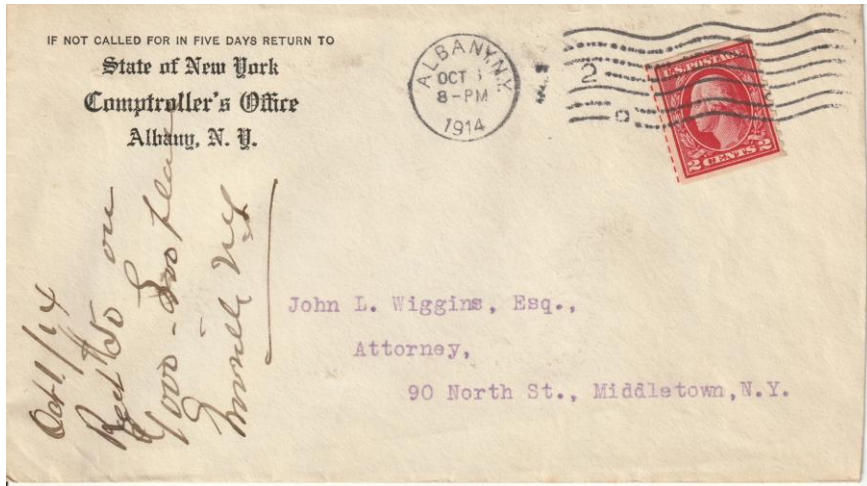 IF NOT CALLED FOR IN FIVE DAYS RETURN TO
State of New York
Comptroller's Office
Albany, N. Y.
ALBANY, N.Y.
OCT
8-PM
1914
2
U.S. POSTAGE
2 CENTS 2
John L. Wiggins, Esq.,
Attorney,
90 North St., Middletown, N.Y.
Oct 1/14
on